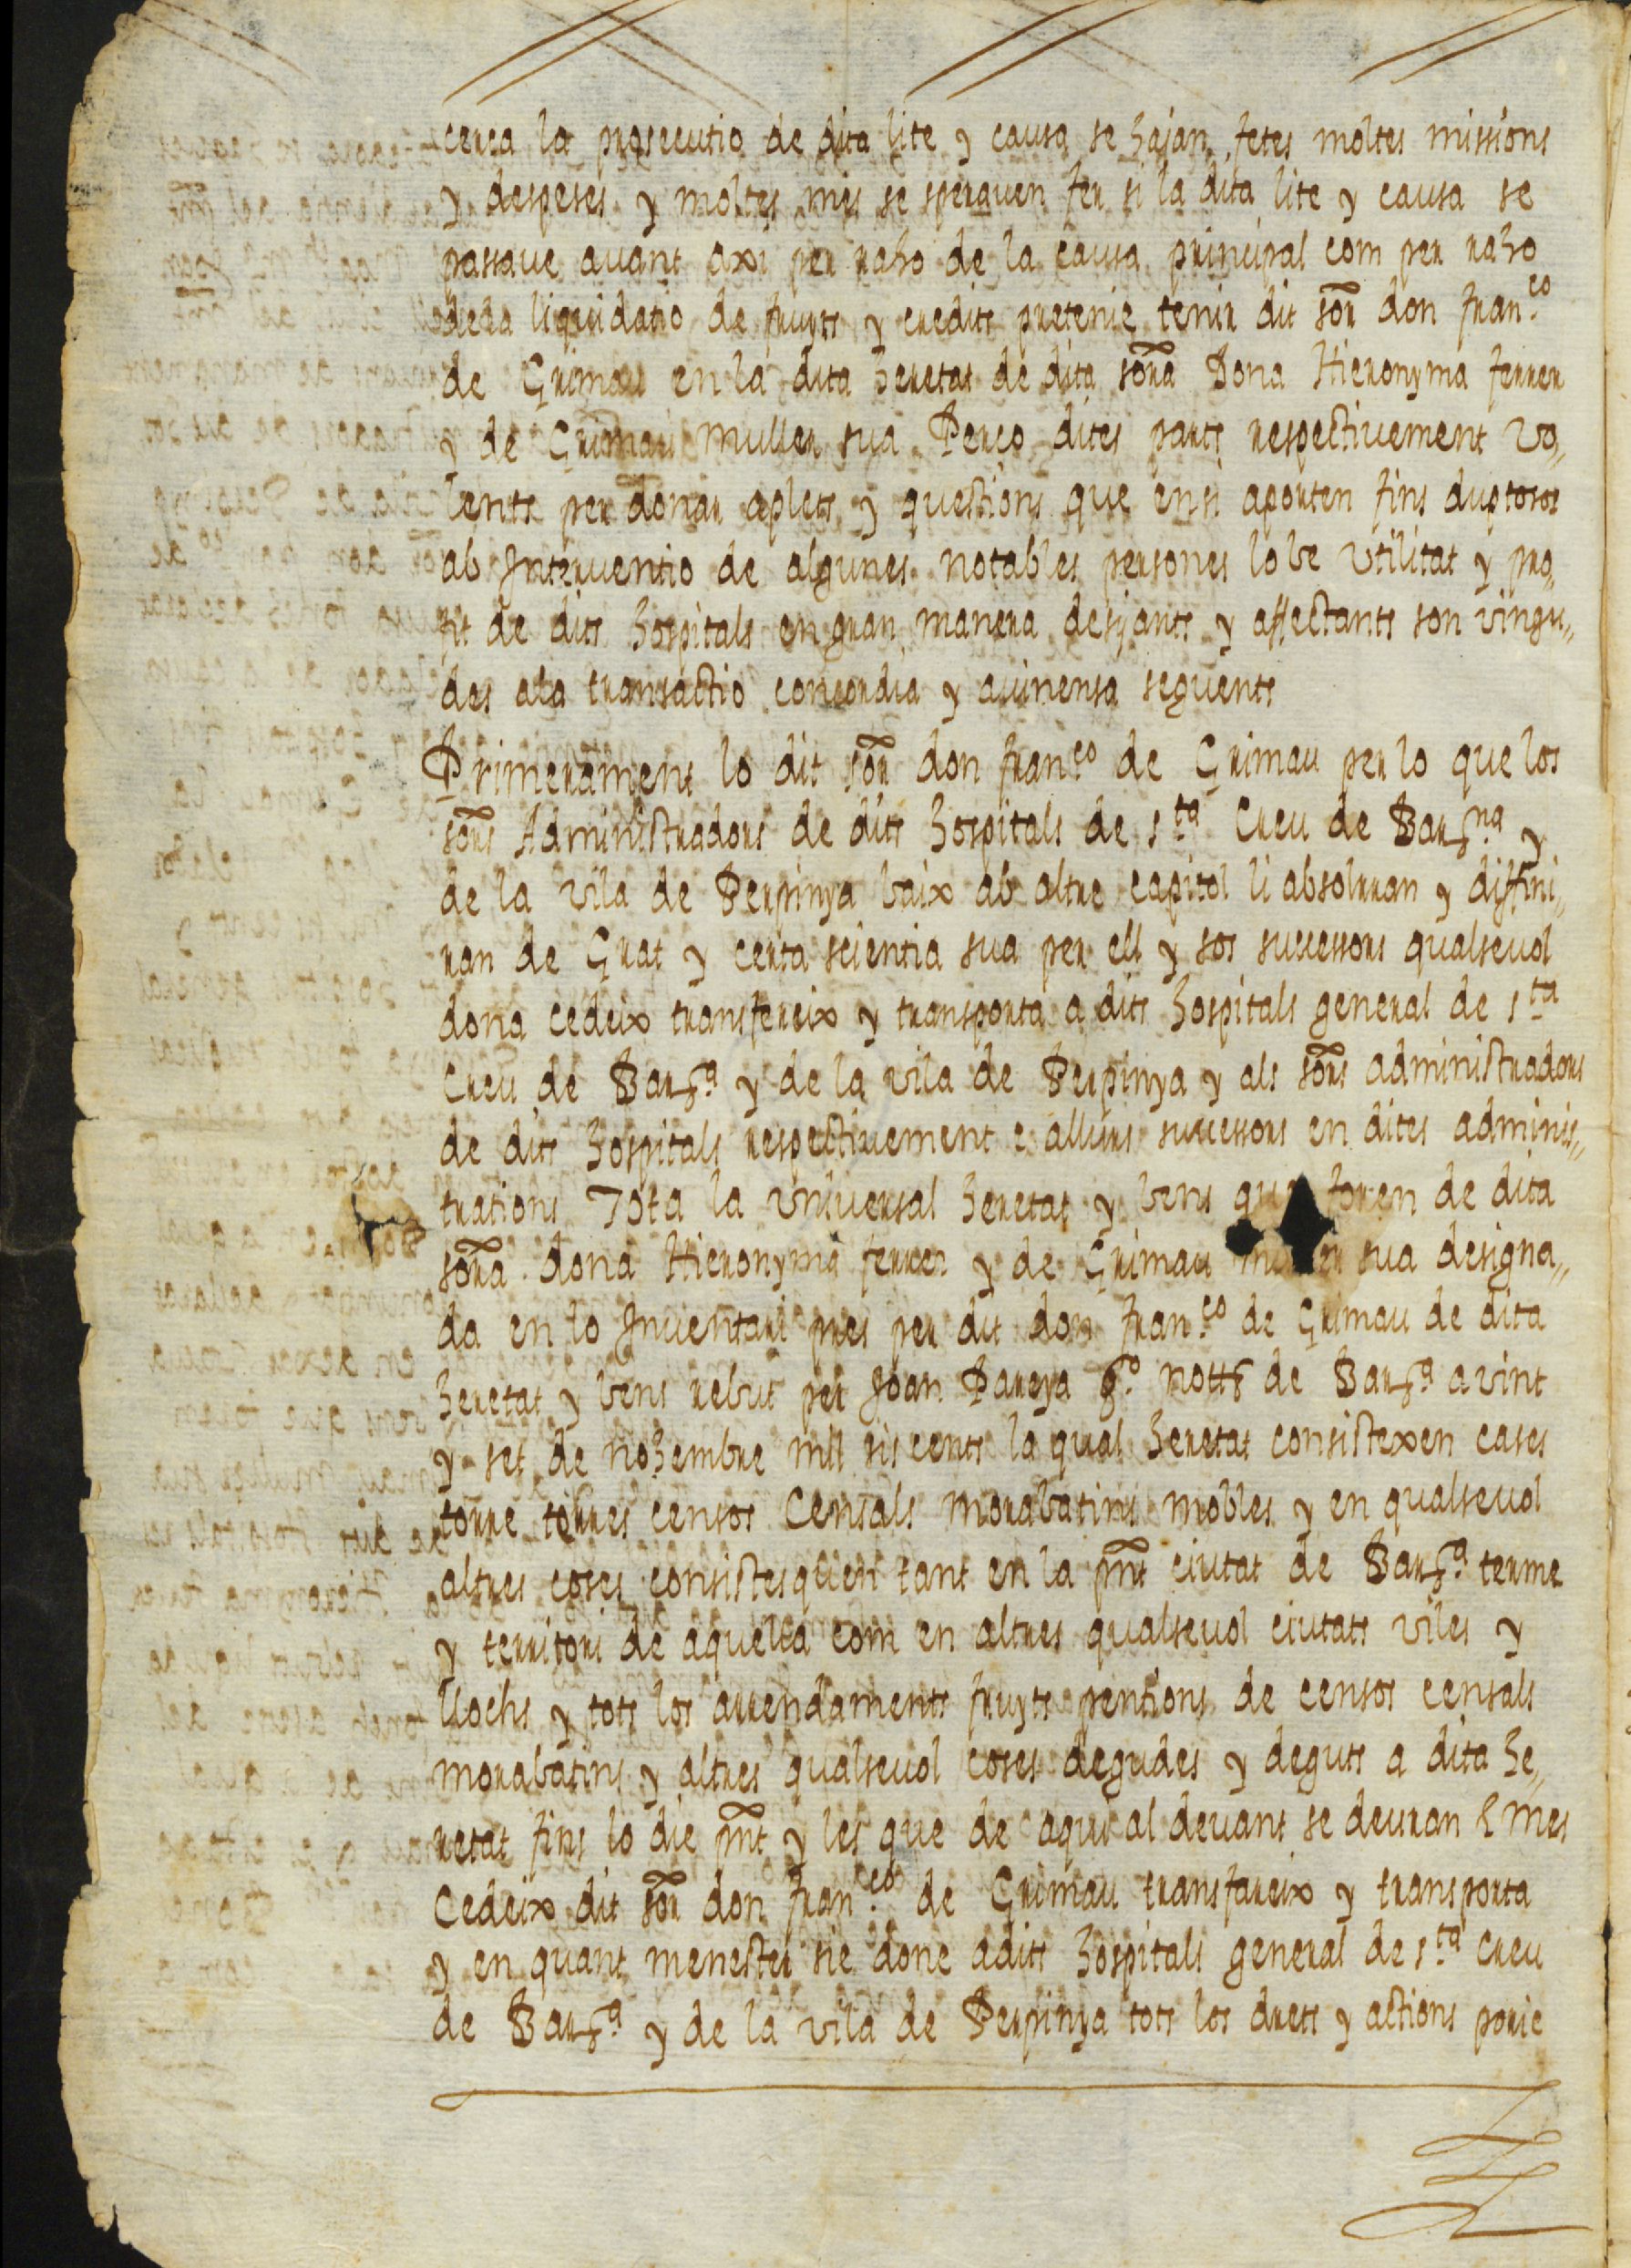 cerca la prosecutio de dita lite y causa se hajan fetes moltes missions
y despeses y moltes mes se speraven fer si la dita lite y causa se
passave avant axi per raho de la causa principal com per raho
dela liquidatio de fruyts y credits pretenie tenir dit sor don fran.co
de Grimau en la dita heretat de dita sora Dona Hieronyma ferrer
y de Grimau muller sua Perço dites parts respectivement vo„
lents per donar aplets y questions que en si aporten fins duptosos
ab Interventio de algunes notables persones lo be utilitat y pro„
fit de dits hospitals en gran manera desijants y affectants son vingu„
des ala transactio concordia y avinensa seguents
Primerament lo dit sor don fran.co de Grimau per lo que los
sors Administradors de dits hospitals de s.ta Creu de Bar.na y
de la vila de Perpinya baix ab altre capitol li absolrran y diffini„
ran de Grat y certa scientia sua per ell y sos successors qualsevol
dona cedeix transfereix y transporta a dits hospitals general de s.ta
Creu de Bar.a y de la vila de Perpinya y als sors administradors
de dits hospitals respectivement e allurs successors en dites adminis„
trations Tota la universal heretat y bens que foren de dita
sora dona Hieronyma ferrer y de Grimau muller sua designa„
da en lo Inventari pres per dit don fran.co de Grimau de dita
heretat y bens rebut per Joan Pareya q.o nott de Bar.a a vint
y set de nohembre mil sis cents la qual heretat consistexen cases
torre terres censos Censals morabatins mobles y en qualsevol
altres coses consistesquen tant en la pnt ciutat de Bar.a terme
y territori de aquella com en altres qualsevol ciutats viles y
llochs y tots los arrendaments fruyts pentions de censos censals
morabatins y altres qualsevol coses degudes y deguts a dita he„
retat fins lo die pnt y les que de aqui al devant se deuran E mes
Cedeix dit sor don fran.co de Grimau transfareix y transporta
y en quant menester sie done adits hospitals general de s.ta creu
de Bar.a y de la vila de Perpinya tots los drets y actions porie